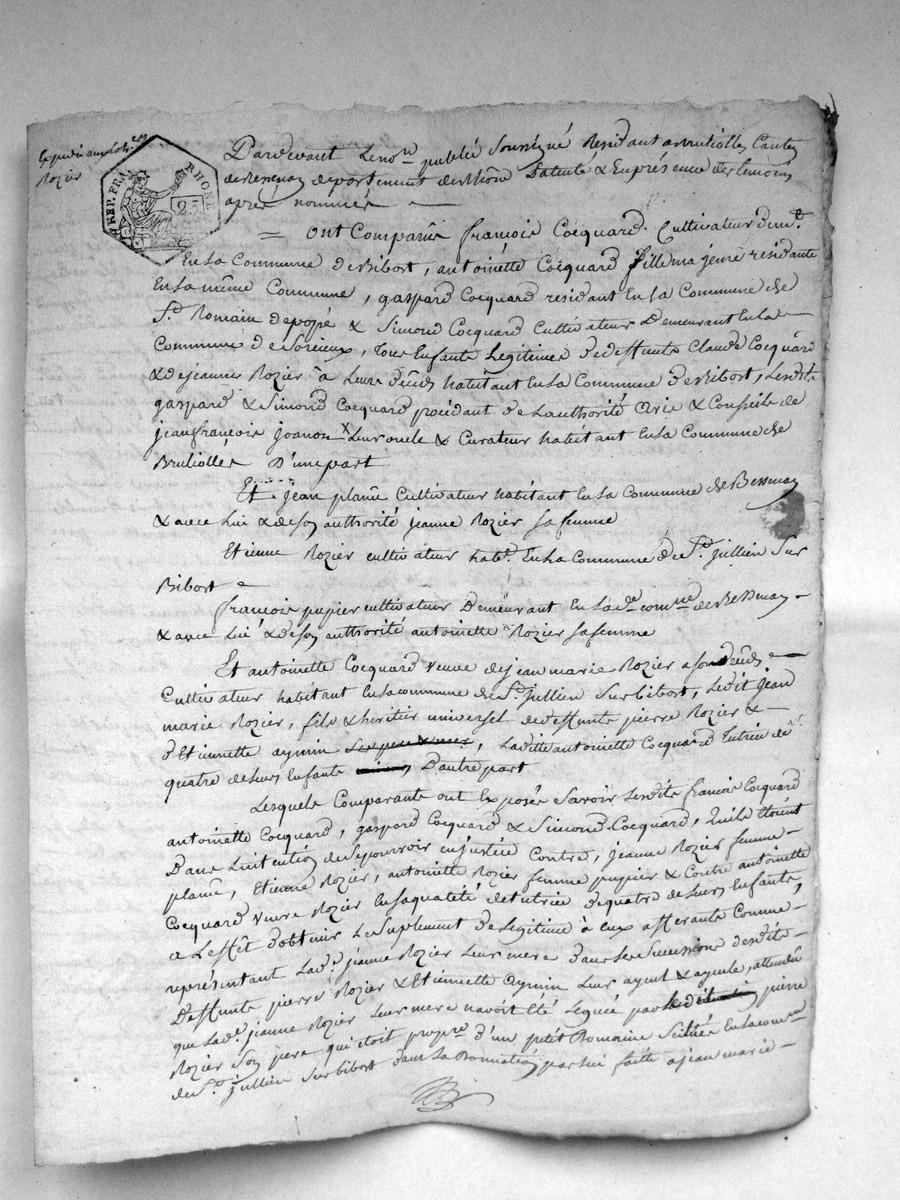 Expédié audit
Rozier
REP. FRA. RHONE 25
Pardevant Le nore publié Soussigné Residant a Brullolles Canton
de Bessenay departement du Rhône Patenté & En présence des temoins
après nommés
= ont Comparûs françois Cocquard Cultivateur Demt.
En La Commune de Bibost, antoinette Cocquard fille majeure residante
En La même Commune, gaspard Cocquard residant En La Commune de
St. Romain de popé & Simond Cocquard Cultivateur Demeurant En La
Commune de Sorieux, Tous Enfants Legitimes de deffunts Claude Cocquard
& de jeanne Rozier à Leurs décéds habitant En La Commune de Bibost, Lesdits
gaspard & Simond Cocquard procédant de L'authorité avis & Conseils de
jean françois joanon x Leur oncle & Curateur habitant En La Commune de
Brullolles D'une part
Et jean planû Cultivateur habitant En La Commune de Bessenay
& avec Lui & de son authorité jeanne Rozier sa femme
Etienne Rozier cultivateur habt. En La Commune de St. jullien Sur
Bibost
françois pupier cultivateur Demeurant En Lade. comne. de Bessenay
& avec Lui & de son authorité antoinette Rozier sa femme
Et antoinette Cocquard veuve de jean marie Rozier a son décéds
Cultivateur habitant En La commune de St. jullien Sur bibost, Ledit jean
marie Rozier, fils & héritier universel de deffunts pierre Rozier &
d'Etiennette aymin, Laditte antoinette Cocquard Tutrice de
quatre de Leurs Enfants D'autre part
Lesquels Comparants ont Exposés Savoir Lesdits francois Cocquard
antoinette Cocquard, gaspard Cocquard & Simond Cocquard, qu'ils étoient
Dans L'intention de Se pourvoir en justice Contre, jeanne Rozier femme
planû, Etienne Rozier, antoinette Rozier femme pupier & Contre antoinette
Cocquard veuve Rozier En Sa qualité de tutrice De quatre de Leurs Enfants,
a L'effêt d'obtenir Le Suplement de Legitime à eux afferants Comme
représentant Lade. jeanne Rozier Leur mere Dans Les Successions desdits
Deffunts pierre Rozier & Etiennette Aymin Leur ayeul & ayeule, attendu
que Lade. jeanne Rozier Leur mere n'avoit été Leguée par Ledit pierre
Rozier Son père qui étoit propre. d'un petit Domaine Scitué En La comne.
de St. jullien Sur bibost Dans La Donnation par Lui faitte a jean marie